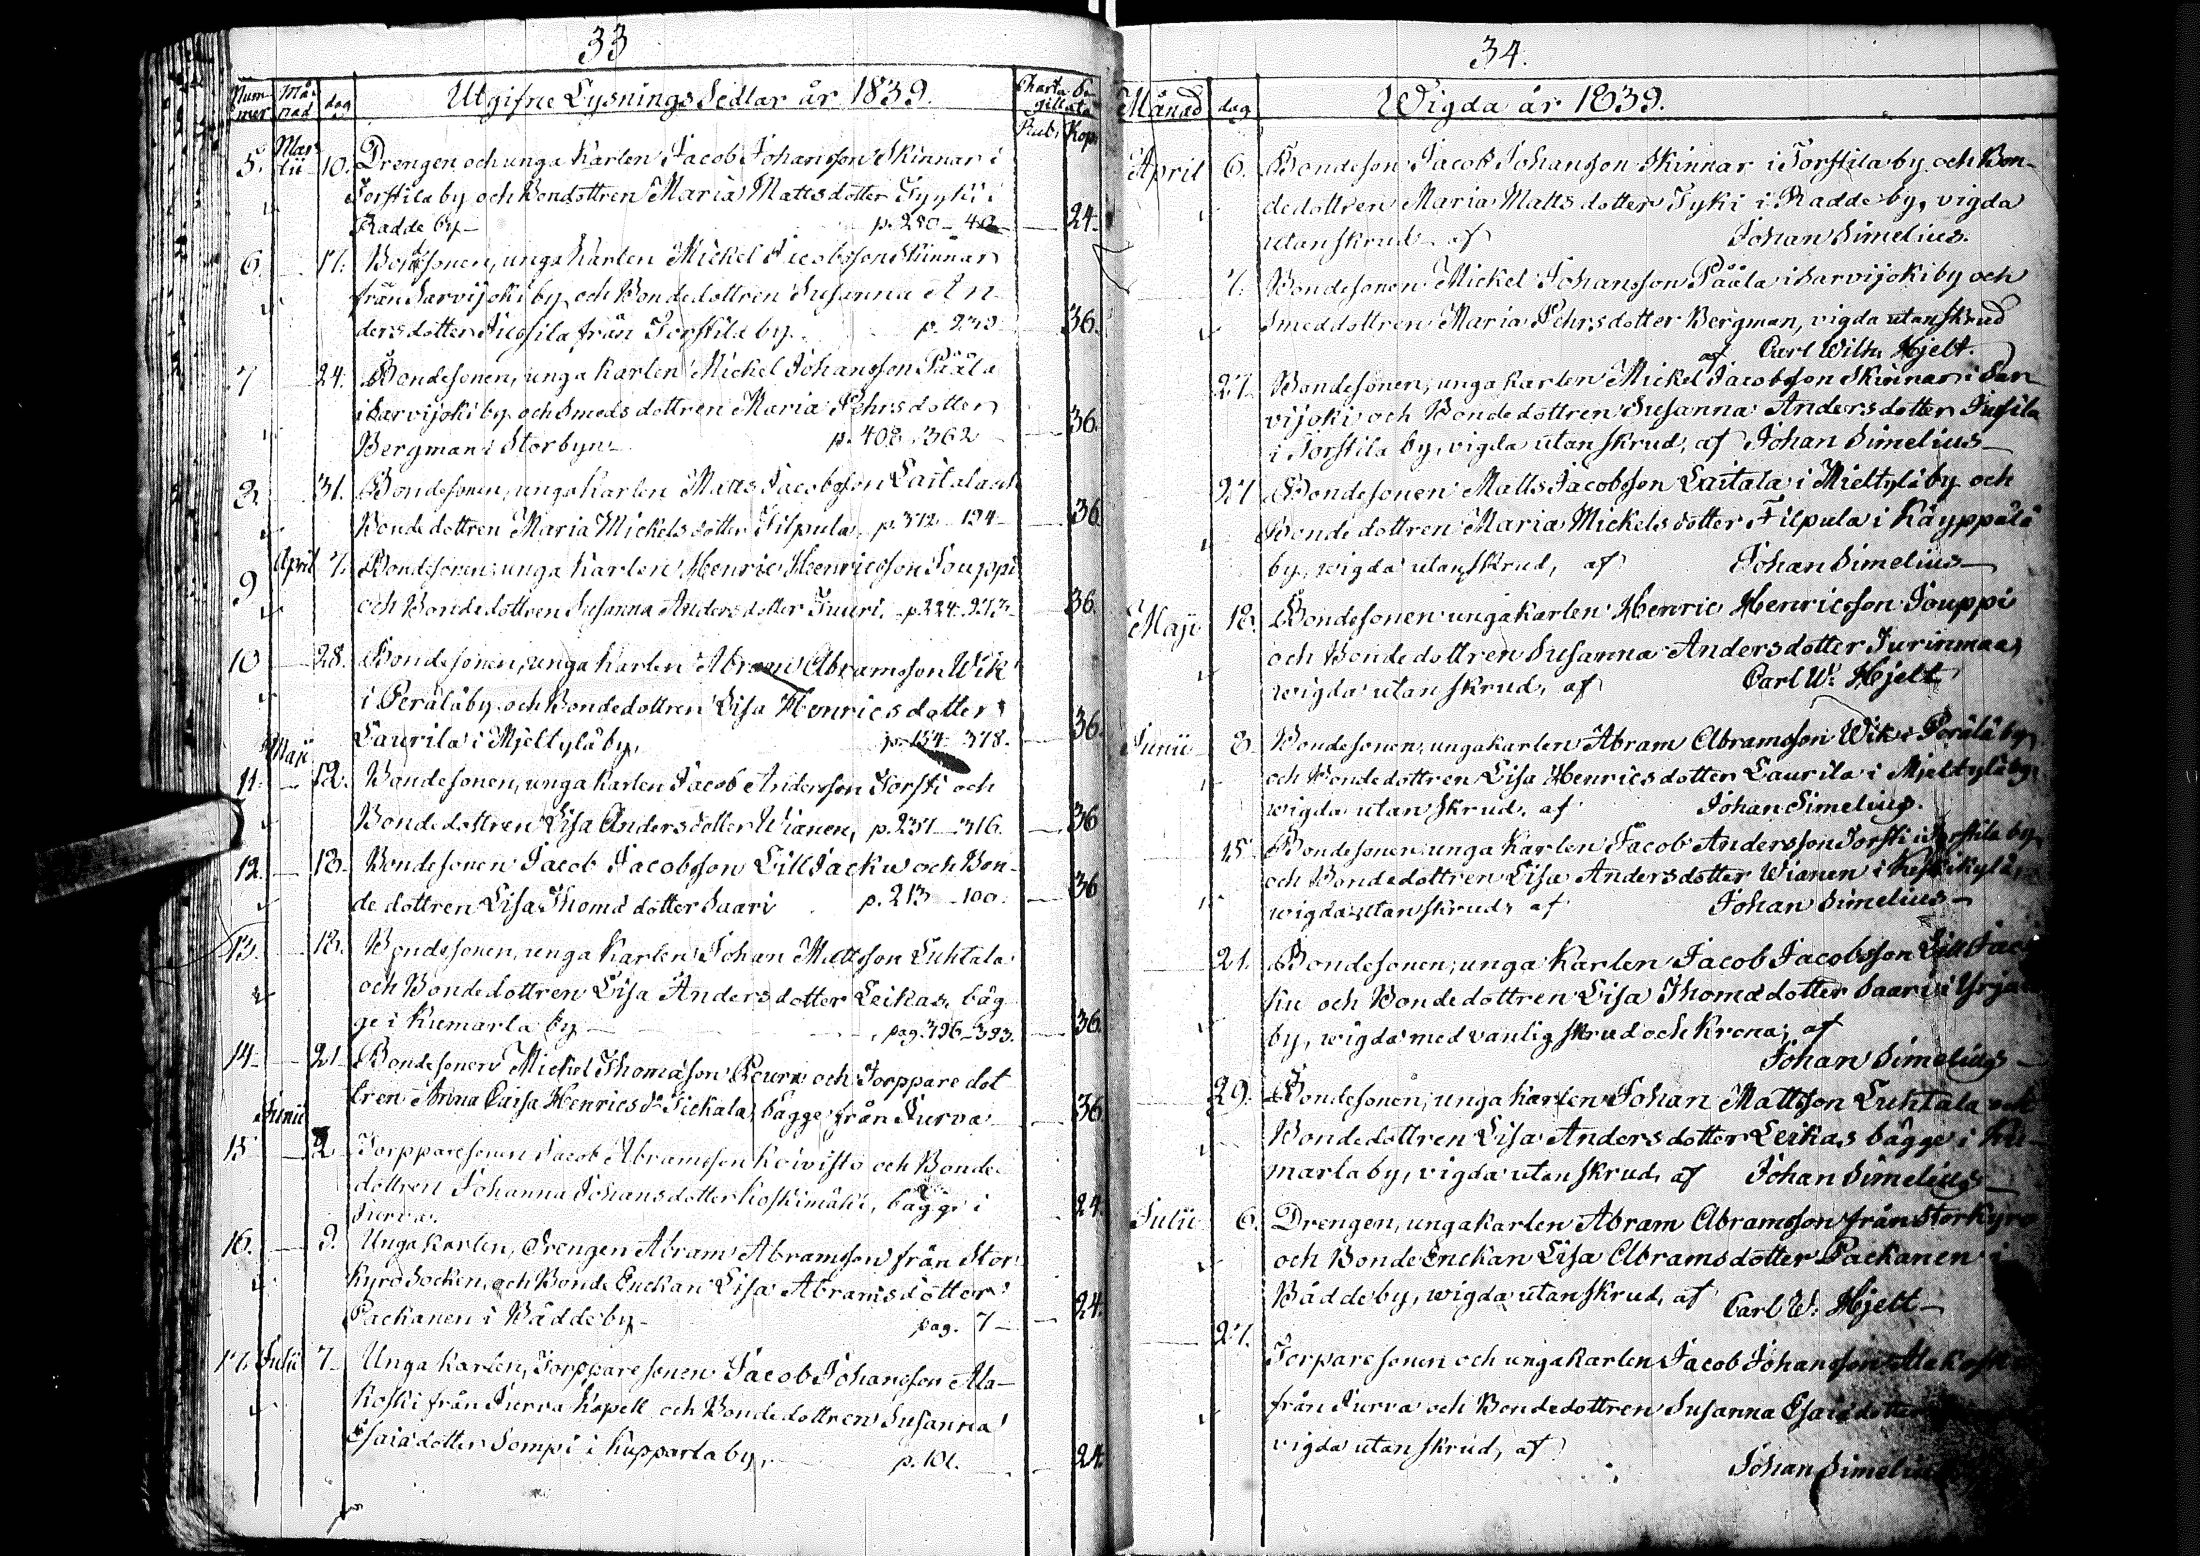 33
Num-
mer
Må-
nad
dag
Utgifne Lysnings Sedlar år 1839.
Charta Be-
gillata
Rub. Kop.
5. Mar-
tii 10. Drengen och unga Karlen Jacob Johansson Skinnar i
Torstila by och Bondottren Maria Mattsdotter Tyyki i
Radde by — p. 250 – 40 — 24.
6. — 17. Bondsonen, unga Karlen Mickel Jacobsson Skinnar
från Sarvijoki by och Bondedottren Susanna An-
dersdotter Jussila från Torstila by. p. 36.
7 24. Bondesonen, unga Karlen Mickel Johansson Pääla
i Sarvijoki by och Smedsdottren Maria Pehrsdotter
Bergman i Storbyn — p. 408. 362 — 36.
8. 31. Bondesonen, unga Karlen Matts Jacobsson Laitala och
Bondedottren Maria Mickelsdotter Filpula, p. 372 – 134 — 36
9 April 7. Bondesonen, unga Karlen Henric Henricsson Jouppi
och Bondedottren Susanna Andersdotter Juuri. p. 224 – 273 — 36.
10 — 28. Bondesonen, unga Karlen Abram Abramsson Wik
i Perälä by och Bondedottren Lisa Henricsdotter
Laurila i Mjeltylä by, p. 154 – 378. 36.
Maji
11. — 12. Bondesonen, unga Karlen Jacob Andersson Torsti och
Bondedottren Lisa Andersdotter Wianen, p. 237 – 316. — 36
12. — 18. Bondesonen Jacob Jacobsson Lill Jacku och Bon-
dedottren Lisa Thomädotter Saari p. 213 – 100. — 36
13. — 18. Bondesonen, unga Karlen Johan Mattsson Luhtala
och Bondedottren Lisa Andersdotter Leikas, båg-
ge i Kumarla by — pag. 396 – 393. — 36.
14. — 21 Bondesonen Mickel Thomäson Peura och Torppare dot-
tren Anna Caisa Henricsdr Tickala, bägge från Jurva — 36
Junii
15 — 2 Torpparesonen Jacob Abramsson Koivisto och Bonde-
dottren Johanna Johansdotter Koskimäki, bägge i
Jurva. 24.
16. — 9. Unga Karlen, Drengen Abram Abramsson från Stor
Kyro Socken, och Bonde Enckan Lisa Abramsdotter
Packanen i Bäddeby — pag. 7 — 24.
17. Julii 7 — Unga Karlen, Torpparesonen Jacob Johansson Ala-
koski från Jurva Kapell och Bondedottren Susanna
Esaiädotter Sompi i Kupparla by, p. 101. — 24.
34.
Månad dag Wigda år 1839.
April 6. Bondeson Jacob Johansson Skinnar i Torstila by och Bon-
dedottren Maria Mattsdotter Tyki i Radde by, vigda
utan skrud af Johan Simelius.
7. Bondesonen Mickel Johansson Pääla i Sarvijoki by och
Smeddottren Maria Pehrsdotter Bergman, vigda utan skrud
af Carl Wilh. Hjelt.
27. Bondesonen, unga Karlen Mickel Jacobsson Skinnar i Sar-
vijoki och Bondedottren Susanna Andersdotter Jussila
i Torstila by, vigda utan skrud, af Johan Simelius —
27 Bondesonen Matts Jacobsson Laitala i Mieltylä by och
Bondedottren Maria Mickelsdotter Filpula i Käyppälä
by, wigda utan skrud, af Johan Simelius —
Maji 12. Bondesonen unga Karlen Henric Henricsson Jouppi
och Bondedottren Susanna Andersdotter Jurinmaa,
wigda utan skrud, af Carl W. Hjelt
Junii 8. Bondesonen, unga Karlen Abram Abramsson Wik i Perälä by
och Bondedottren Lisa Henricsdotter Laurila i Mjeltylä by,
wigda utan skrud, af Johan Simelius.
15 Bondesonen unga Karlen Jacob Andersson Torsti i Torstila by
och Bondedottren Lisa Andersdotter Wianen i Keskikylä,
wigda utan skrud, af Johan Simelius —
21. Bondesonen, unga Karlen Jacob Jacobsson Lill Jac-
ku och Bondedottren Lisa Thomädotter Saari i Yrjälä
by, wigda med vanlig skrud och krona, af
Johan Simelius —
29. Bondesonen, unga Karlen Johan Mattsson Luhtala och
Bondedottren Lisa Andersdotter Leikas bägge i Ku-
marla by, vigda utan skrud, af Johan Simelius —
Julii 6. Drengen, unga karlen Abram Abramsson från Storkyro
och Bonde Enckan Lisa Abramsdotter Packanen i
Bäddeby, wigda utan skrud, af Carl W. Hjelt —
27. Torparesonen och unga karlen Jacob Johansson Alakoski
från Jurva och Bondedottren Susanna Esaiädotter
vigda utan skrud, af
Johan Simelius